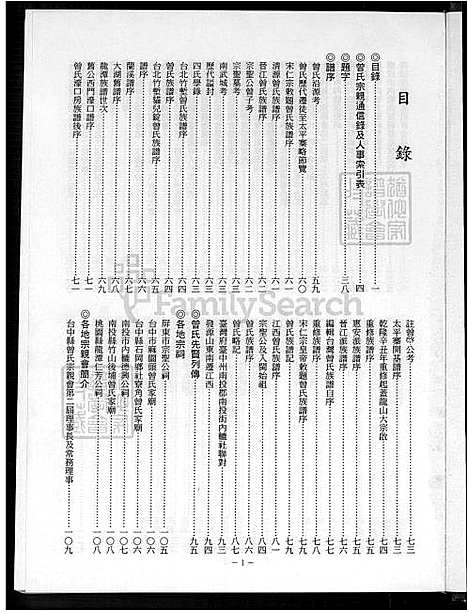 目錄
◎目錄……一
◎曾氏宗親通信錄及人事索引表……四
◎題字……三八
◎譜序
曾氏沿源考……五九
曾氏歷代遷徙至太平寨略節覽……六〇
宋仁宗敕題曾氏族譜序……六一
清源曾氏族譜序……六一
晉江曾氏族譜序……六二
宗聖公曾子考……六二
宗聖墓考……六三
南武城考……六三
歷代謚封……六三
四氏學錄……六三
台北竹塹曾氏族譜序……六四
曾氏族譜序……六四
台北竹塹貓兒錠曾氏族譜序……六五
譜序……六六
蘭溪譜序……六七
大湖舊譜序……六八
龍潭族譜世次……六九
舊公西門濠口譜序……七一
曾氏濠口房族譜後序……七一
註曾公考……七三
太平寨開基譜序……七三
乾隆辛丑年重修起蓋龍山大宗啟……七四
重修族譜序……七五
惠安派族譜序……七六
晉江派族譜序……七六
編輯台灣曾氏族譜自序……七七
重修族譜序……七八
宋仁宗皇帝敕題曾氏族譜序……八二
曾氏族譜記……八五
江西曾氏族譜序……八七
宗聖公及入閩始祖……八八
曾氏族譜序……九〇
曾氏略記……九一
臺灣府臺中州南投郡南投街內轆社聯對……九三
發源山東南遷江西……九四
◎曾氏先賢列傳……九五
◎各地宗祠
屏東市宗聖公祠……一〇五
台中市麻糍埔曾氏家廟……一〇六
台中縣石岡鄉社寮角曾氏家廟……一〇六
南投市內轆德興公祠……一〇七
南投縣竹山後埔曾氏家廟……一〇八
桃園縣龍潭仁芳公祠……一〇八
◎各地宗親會簡介
台中縣曾氏宗親會第二屆理事長及常務理事……一〇九
－1－
FamilySearch